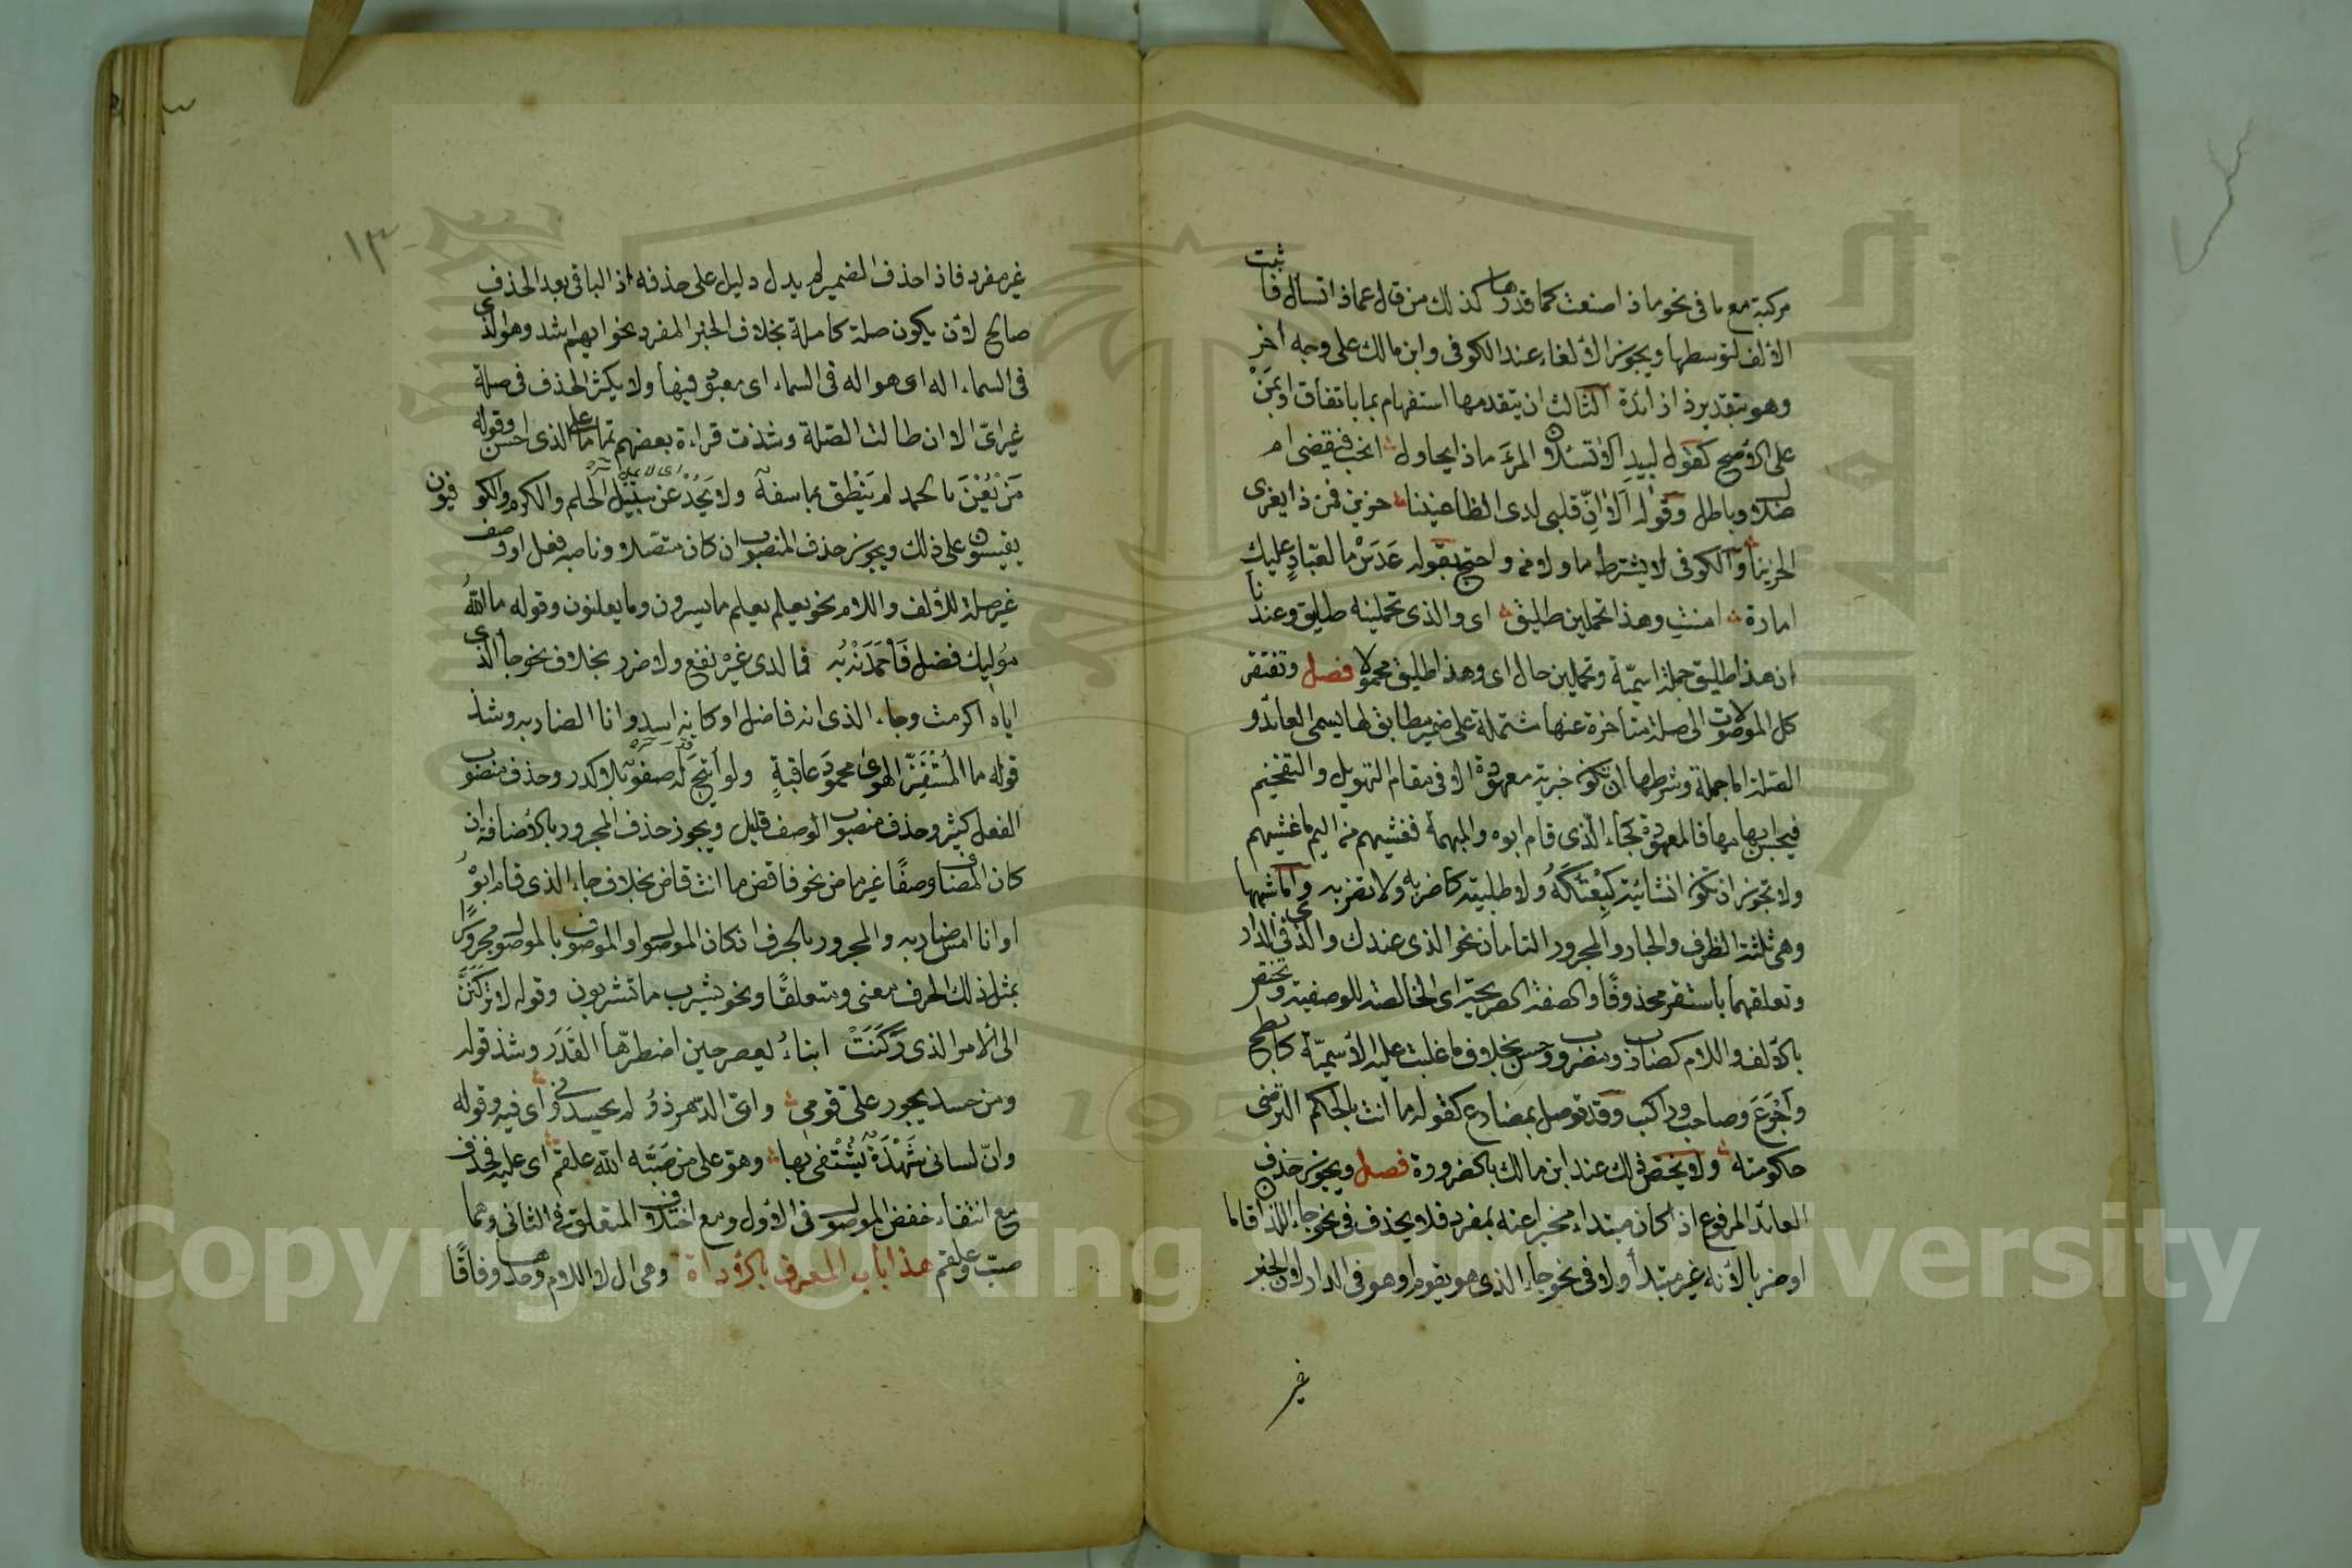 مركبة مع ما فى نحو ماذا صنعت كما قدرها كذلك من قال عماذا تسأل فأثبت
الألف لتوسطها ويجوز الألغاء عند الكوفى وابن مالك على وجه أخر
وهو بتقدير ذا زائدة الثالث ان يتقدمها استفهام بما باتفاق او بمَنْ
على الأصح كقول لبيد الا تسئلان المرءَ ماذا يحاول انحب فيقضى ام
ضلال وباطل وقوله اَلا اِنّ قلبى لدى الظاعنينا حزين فمن ذا يعزى
الحزينا والكوفى لا يشترط ما ولا من واحتج بقوله عَدَسْ ما لعبّادٍ عليك
امارة امنتِ وهذا تحملين طليق اى والذى تحملينه طليق وعندنا
ان هذا طليق جملة اسميّة وتحملين حال اى وهذا طليق محمولا فصل وتفتقر
كل الموصولات الى صلة متأخرة عنها مشتملة على ضمير مطابق لها يسمى العائد و
الصلة اما جملة وشرطها ان تكون خبرية معهودة الا فى مقام التهويل والتفخيم
فيحسن ابهامها فالمعهودة كجاء الّذى قام ابوه والمبهمة فغشيهم من اليم ما غشيهم
ولا تجوز ان تكون انشائية كبِعْتُكَهُ ولا طلبية كاضربه ولا تضربه واما شبهها
وهى ثلثة الظرف والجار والمجرور التامان نحو الذى عندك والذى فى الدار
وتعلقهما باستقر محذوفًا والصفة الصريحة اى الخالصة للوصفية وتختص
بالألف واللام كضارب ومضروب وحسن بخلاف ما غلبت عليه الأسميّة كابطح
وأجْرَعَ وصاحب وراكب وقد توصل بمضارع كقوله ما انت بالحكم الترضى
حكومته ولا يختص ذلك عند ابن مالك بالضرورة فصل ويجوز حذف
العائد المرفوع اذا كان مبتداء مخبرا عنه بمفرد فلا يحذف فى نحو جاء اللذان قاما
او ضربا لأنه غير مبتدأ ولا فى نحو جاء الذى هو يقوم او هو فى الدار لان الخبر
غير
١٣
غير مفرد فاذا حذف الضمير لم يدل دليل على حذفه اذ الباقى بعد الحذف
صالح لأن يكون صلة كاملة بخلاف الخبر المفرد نحو ايهم اشد وهو الذى
فى السماء اله اى هو اله فى السماء اى معبود فيها ولا يكثر الحذف فى صلة
غير اىّ الا ان طالت الصّلة وشذت قراءة بعضهم تماما على الذى احسن وقوله
مَنْ يُعْنَ بالحمد لم يَنْطِق بما سفه ولا يَحِدْ عن سبيل الحلم والكرم والكوفيون
يقيسون على ذلك ويجوز حذف المنصوب ان كان متصلا وناصبه فعل او وصف
غير صلة للألف واللام نحو يعلم يعلم ما يسرون وما يعلنون وقوله ما اللهُ
مُوليك فضل فَاحْمَدَنْهُ به فما لدى غيرْه نفع ولا ضرر بخلاف نحو جأ الذى
اياه اكرمت وجاء الذى انه فاضل او كانه اسد وانا الضاربه وشذ
قوله ما المُسْتَفِزُّ الهوى محمودَ عاقبةٍ ولو أتيح له صفوٌ بلا كدر وحذف منصوب
الفعل كثير وحذف منصوب الوصف قليل ويجوز حذف المجرور بالأضافة ان
كان المضاف وصفًا غير ماض نحو فاقض ما انت قاض بخلاف جاء الذى قام ابوْهُ
او انا امس ضاربه والمجرور بالحرف ان كان الموصول او الموصوف بالموصول مجرورًا
بمثل ذلك الحرف معنى ومتعلقًا ونحو يشرب ما تشربون وقوله لا تركَنَنَّ
الى الأمر الذى رَكَنَتْ ابناءُ يعصر حين اضطرّها القَدَر وشذ قوله
ومن حسد يجور علىّ قومى واىّ الدّهر ذو لم يحسدونى أى فيه وقوله
وانّ لسانى شَهْدَةٌ يُشْتَفى بها وهوّ على من صَبَّه الله علقم اى عليه فحذف
مع انتفاء خفض الموصول فى الأول ومع اختلاف المتعلق فى الثانى وهما
صبّ وعلقم هذا باب المعرف بالأداة وهى ال لا اللام وحدها وفاقًا
Copyright © King Saud University